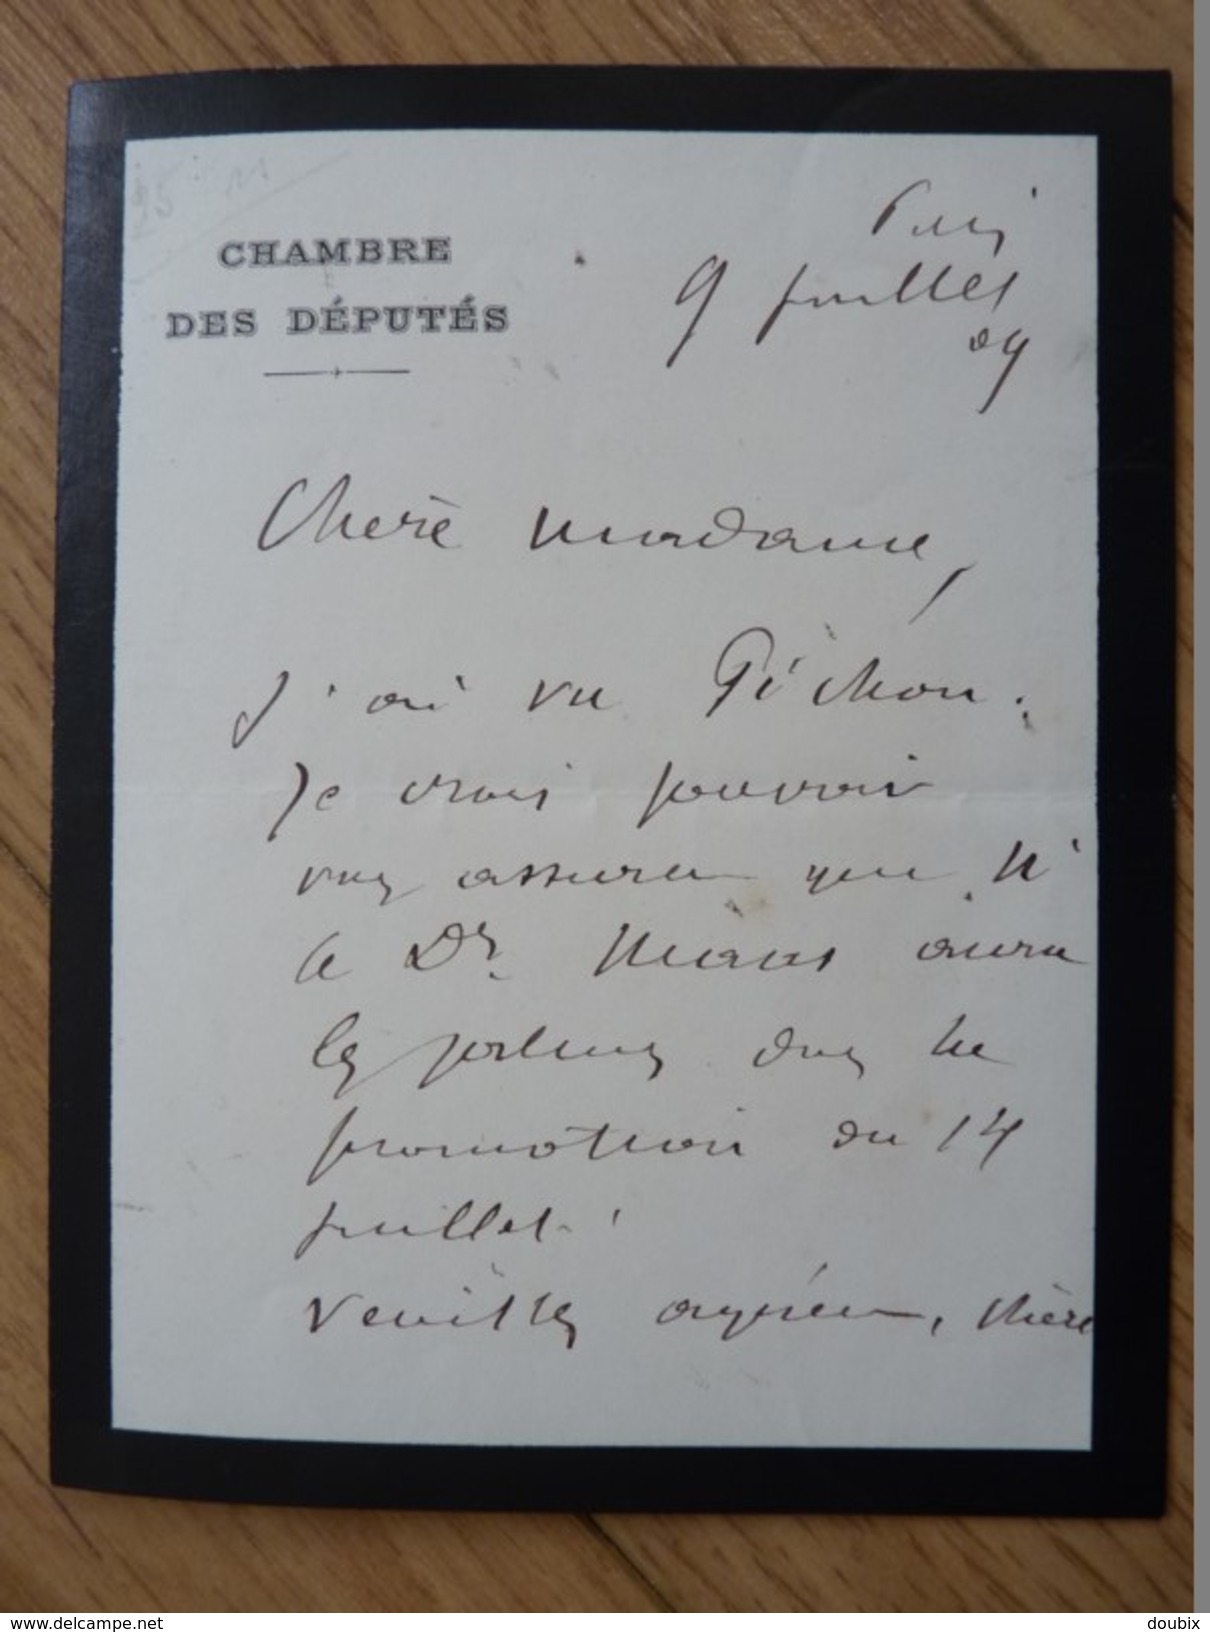 CHAMBRE
DES DÉPUTÉS
Paris
9 juillet
09
Chère madame,
J'ai vu Pichon.
Je crois pouvoir
vous assurer que M
le Dr. aura
les palmes dans la
promotion du 14
juillet.
Veuillez agréer, chère
delcampe.net
doubix